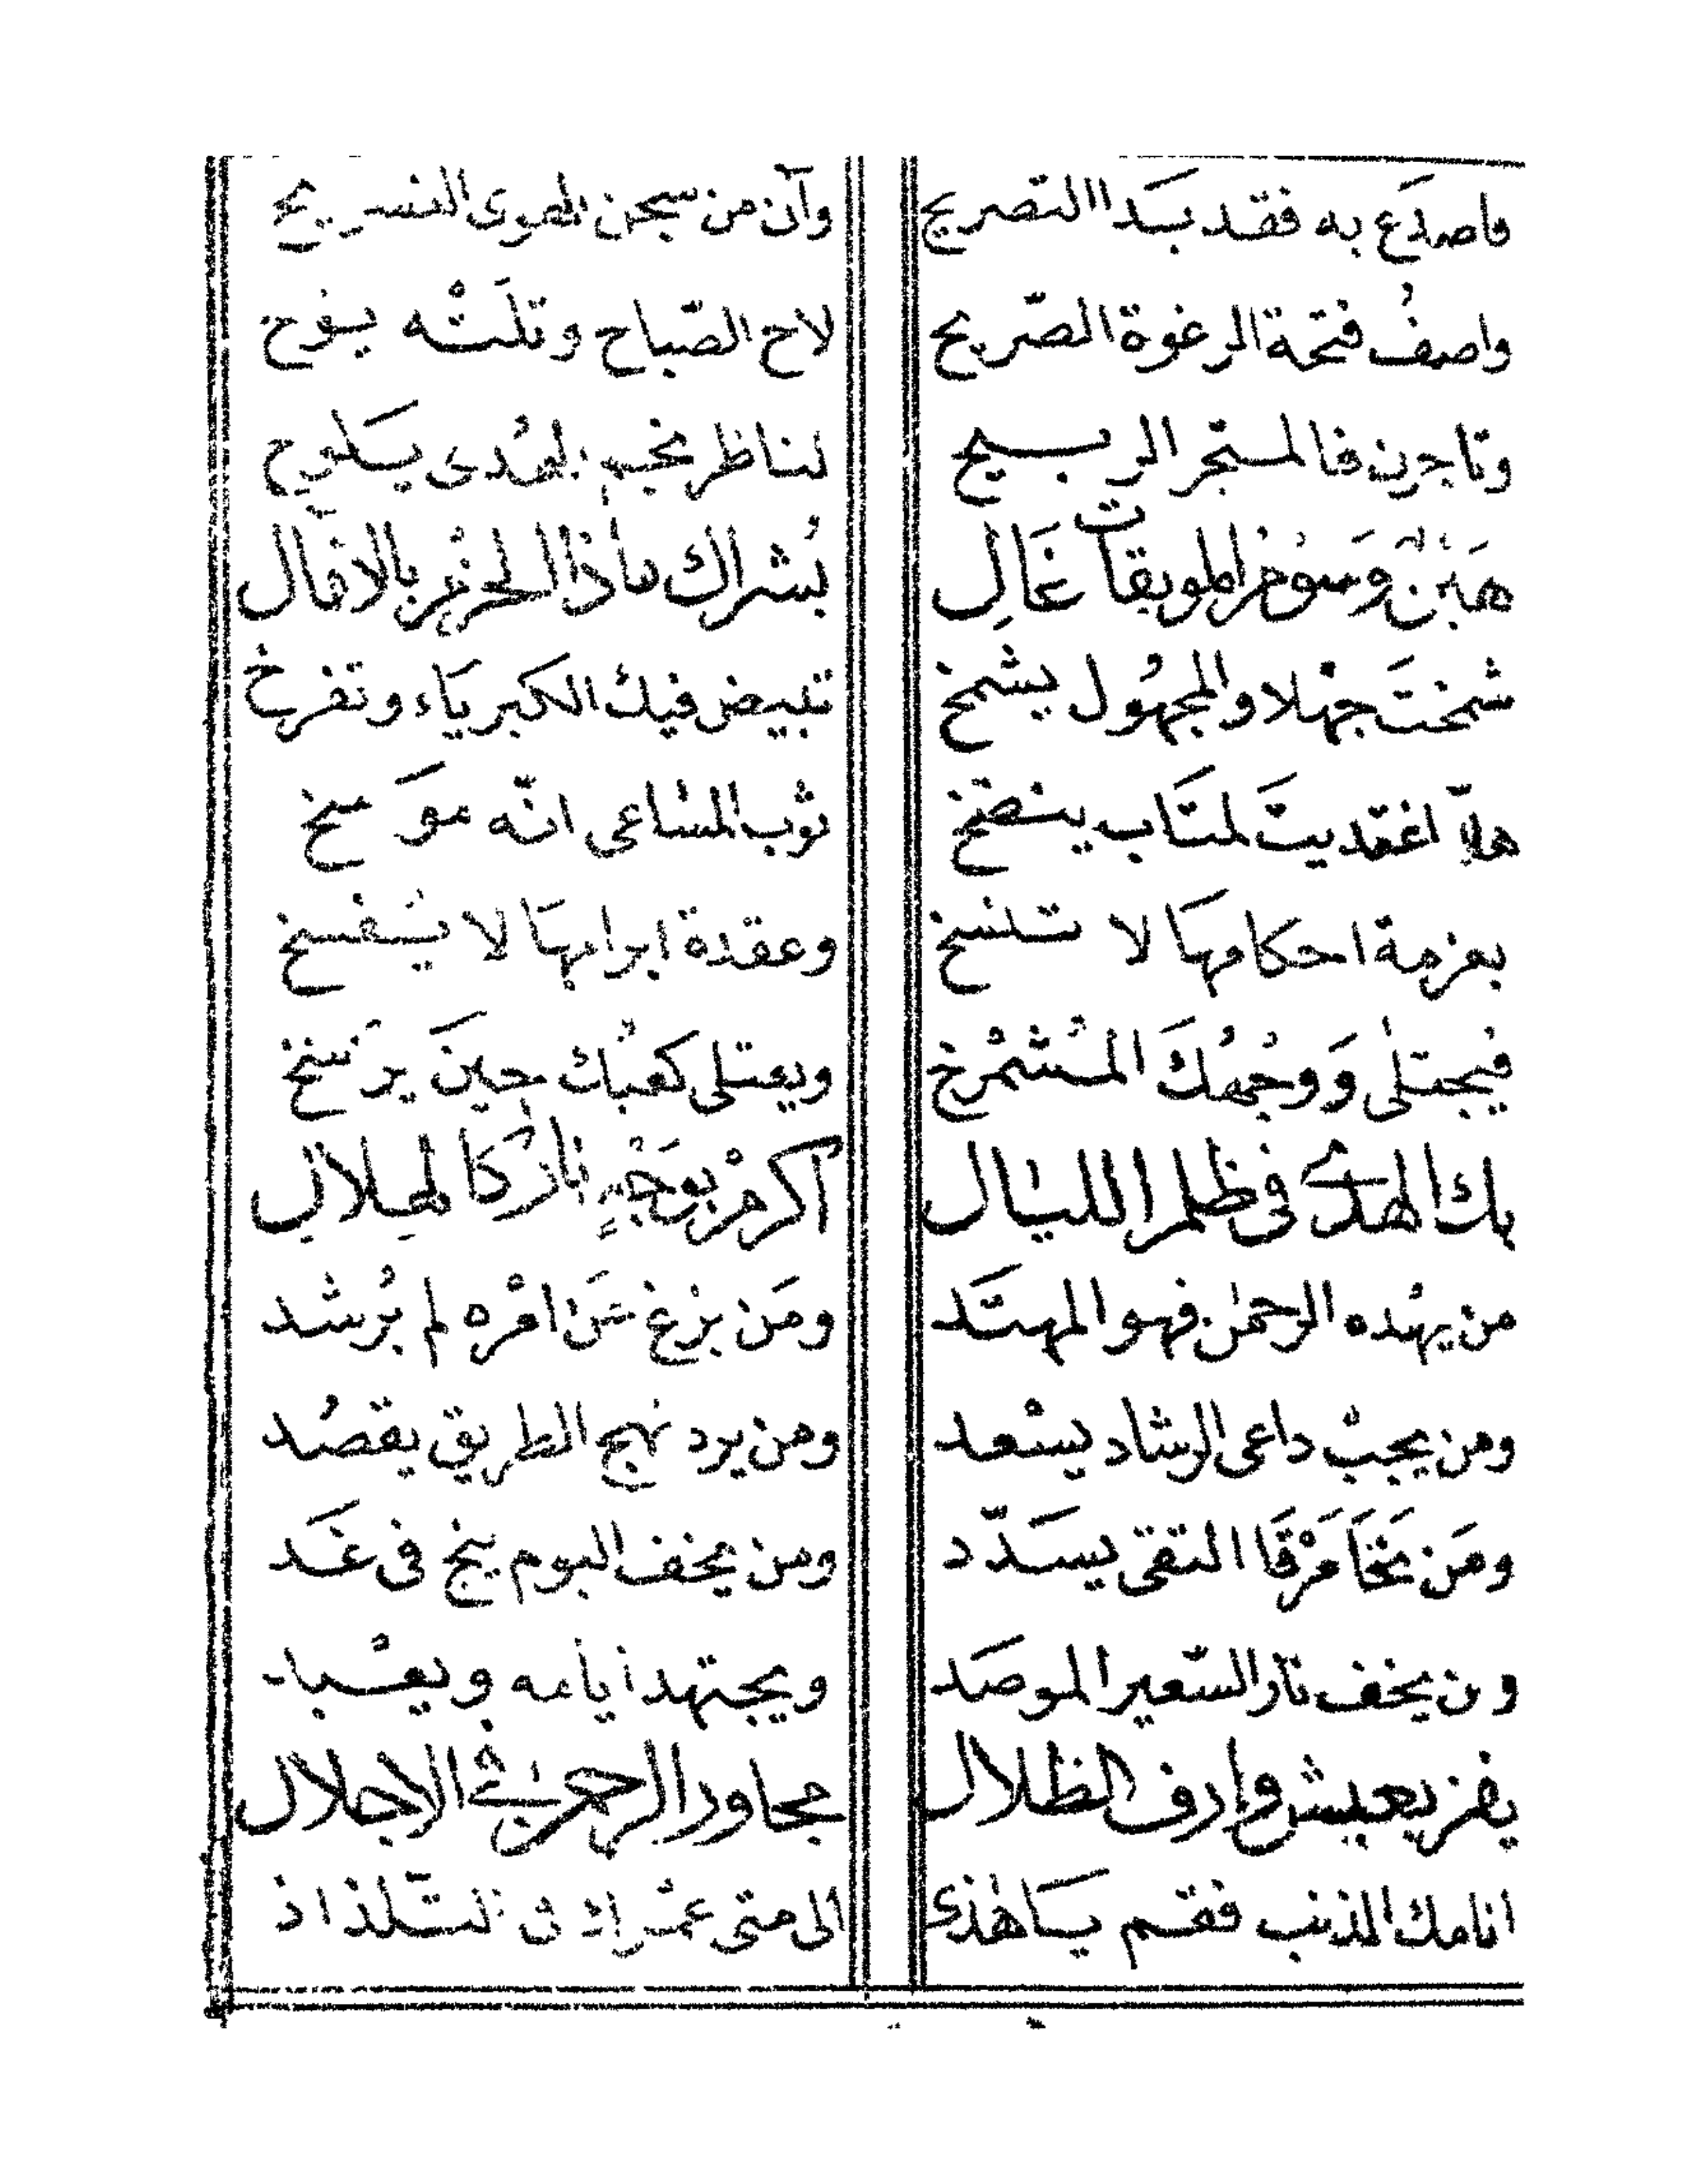 فاصدَع به فقد بَدا التصريح وآن من سجن الهوى التسريح
واصفُ فتحة الرغوة الصّريح لاح الصّباح وتلَتْه يوُح
وتاجرن فالمتجر الربيح لناظر نجم الهُدى يَلوح
وسَوْم الموبقات غَالِ بُشراك ماذا الحزم بالافال
شمختَ جهْلا والمجهُول يشمخ تبيض فيك الكبريَاء وتفرخ
هلاّ اغتديتَ لمتَاب ينتضخ ثوب المساعى انّه موَسخ
بعزمة احكامهَا لا تنسخ وعقدة ابرامهَا لا يُفسخ
فيجتلى وَوجُهكَ المُشمْرخ ويعتلى كعبُك حينَ يرسخ
بك الهدى فى ظلم الليال اكرمْ بوَجْهٍ نازَ كالهلال
من يهْده الرحمٰن فهو المهتَد ومَن يزغ عَن امْره لم يُرشد
ومن يجبْ داعى الرشاد يسْعد ومن يرد نهج الطريق يقصُد
ومَن نَحَا مَرْقَا التقى يسَدّد ومن يخف اليوم ينج فى غَد
ومن يخف نار السّعير الموصَد ويجتهد أيامه ويعْبد
يفز بعيش وارف الظلال مجاور الرحمٰن فى الاجلال
انامك المذنب فقم يَا هٰذى الى متى عمْرك فى التّلذاذ